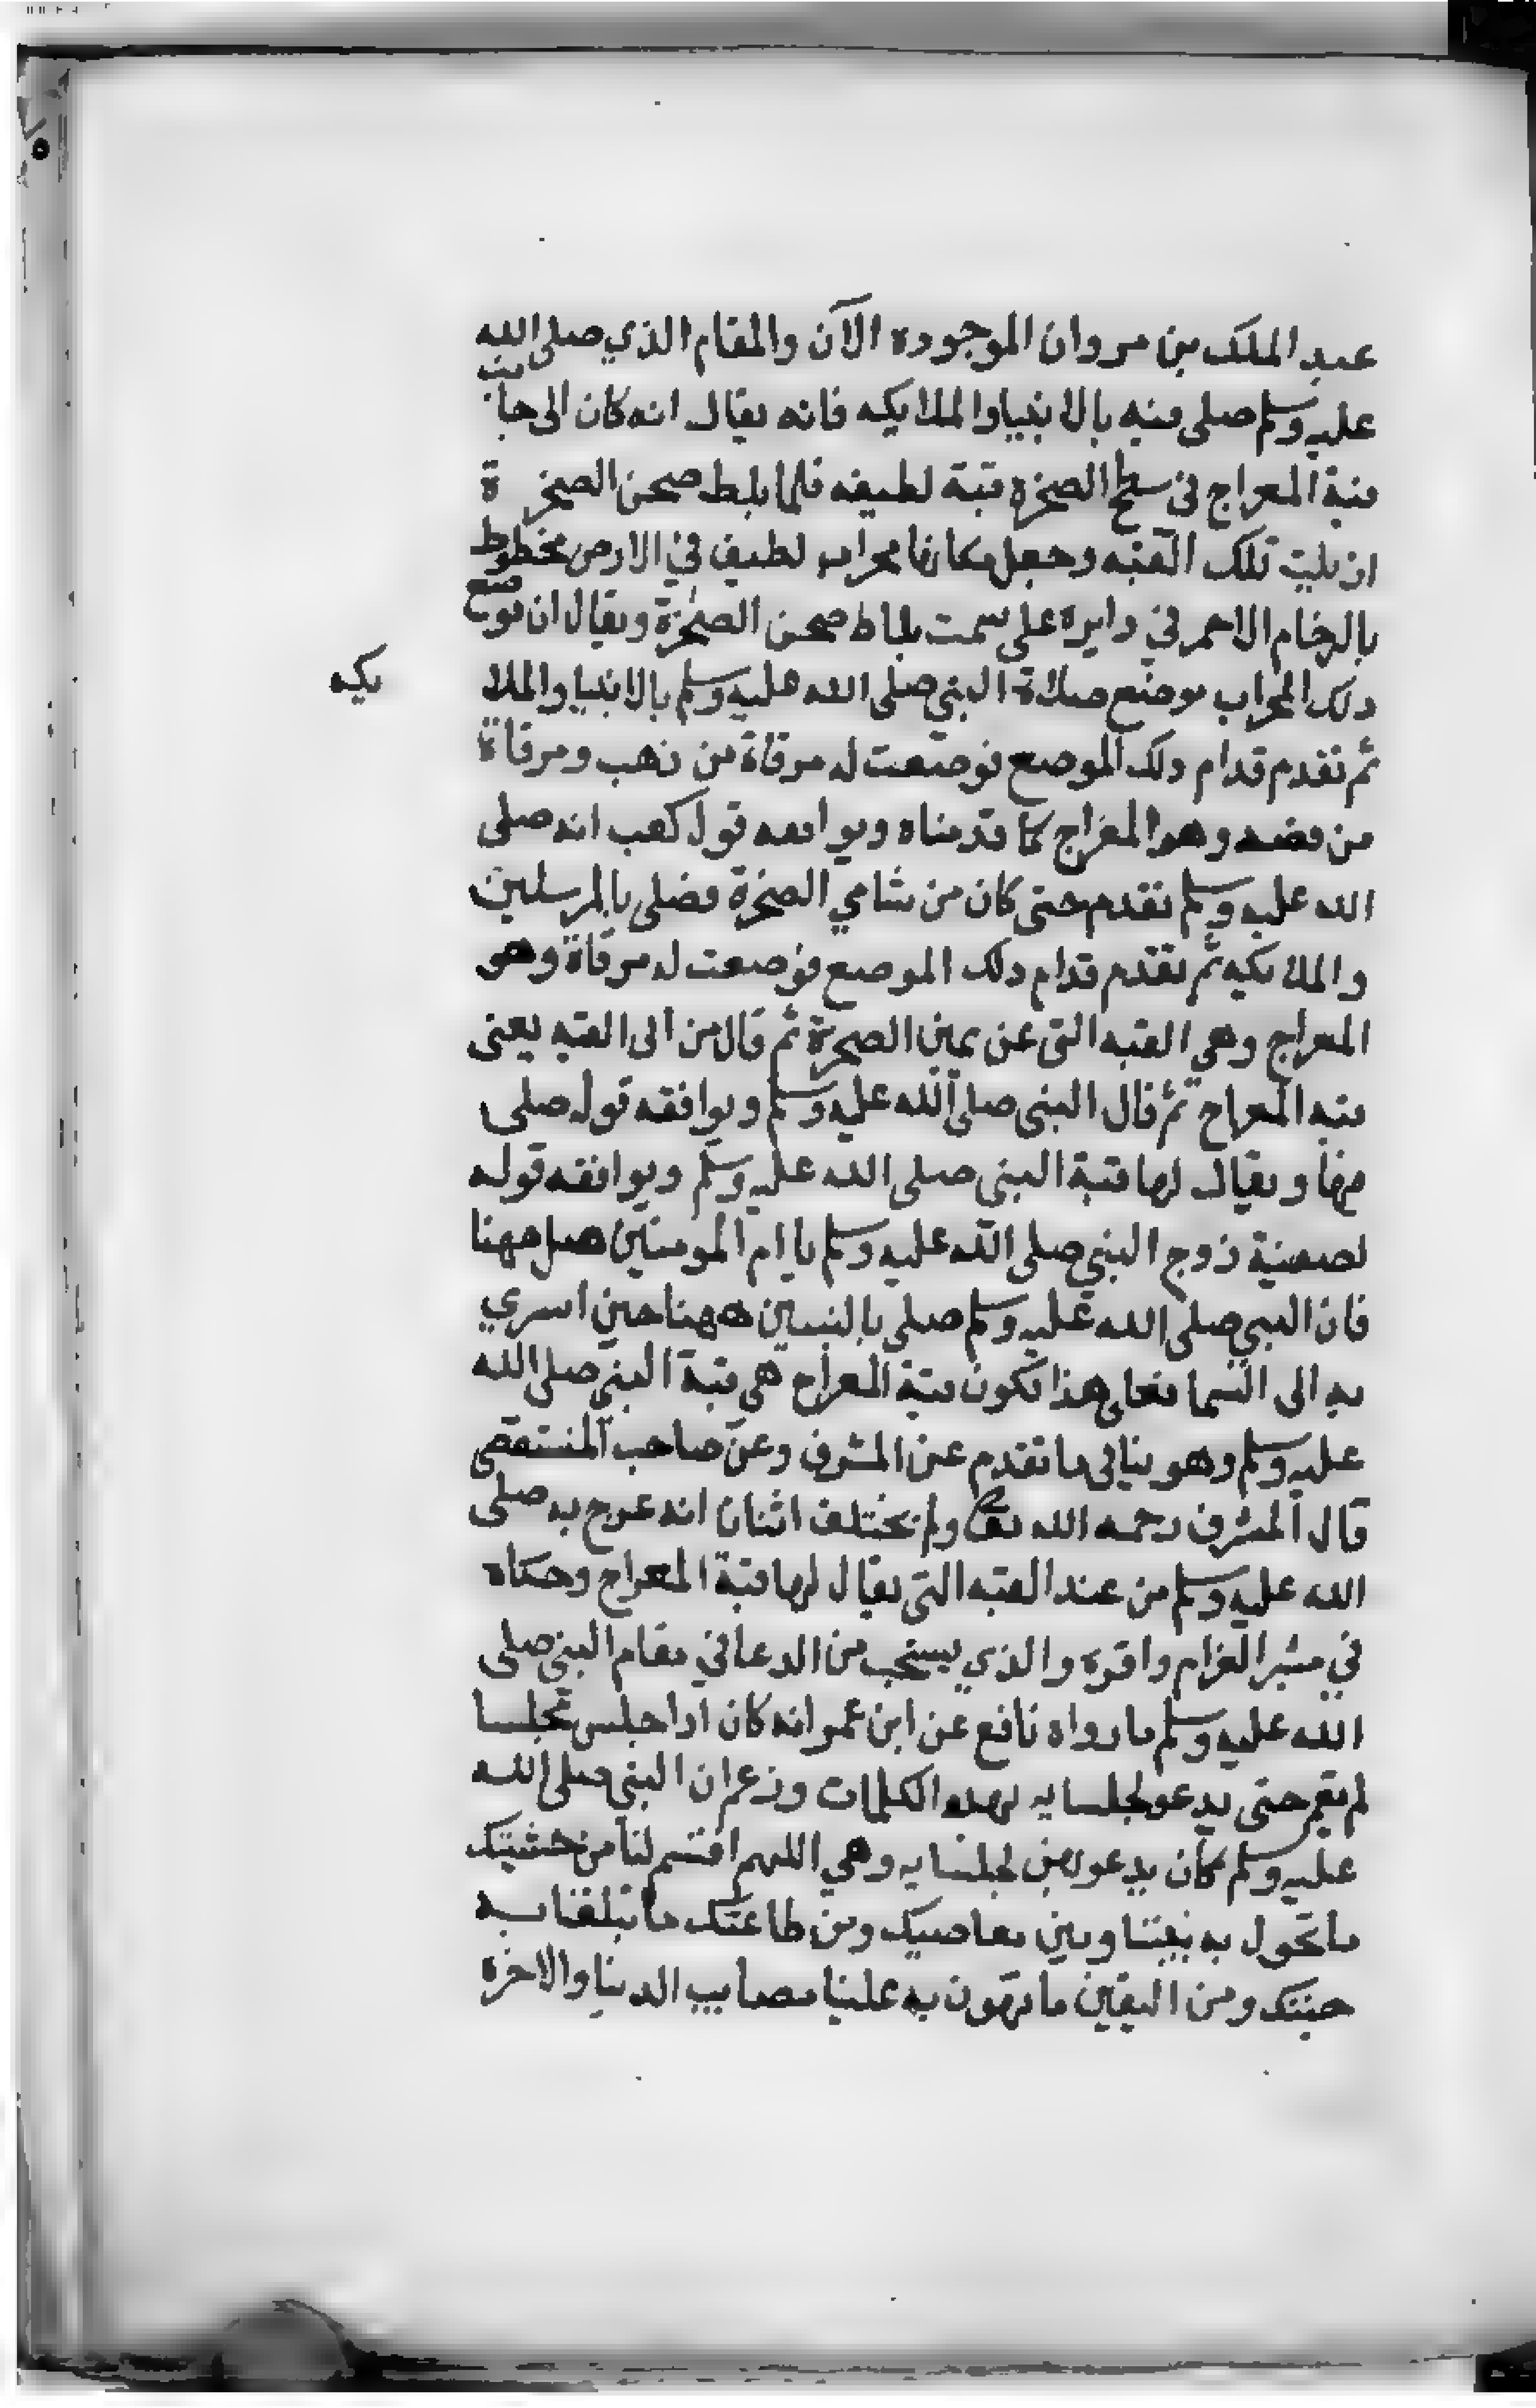 عبد الملك بن مروان الموجوده الآن والمقام الذي صلى الله
عليه وسلم صلى فيه بالانبيا والملايكه فانه يقال انه كان الى جانب
قبة المعراج في سطح الصخره قبة لطيفه فلما بلط صحن الصخرة
ازيلت تلك القبه وجعل مكانها محراب لطيف في الارض مخطوط
بالرخام الاحمر في دايره على سمت بلاط صحن الصخرة ويقال ان موضع
ذلك المحراب موضع صلاة النبي صلى الله عليه وسلم بالانبيا والملا يكه
ثم تقدم قدام ذلك الموضع فوضعت له مرقاة من ذهب ومرقاة
من فضه وهو المعراج كما قدمناه ويوافقه قول كعب انه صلى
الله عليه وسلم تقدم حتى كان من شامي الصخرة فصلى بالمرسلين
والملايكه ثم تقدم قدام ذلك الموضع فوضعت له مرقاة وهو
المعراج وهي القبه التي عن يمين الصخرة ثم قال من اتى القبه يعني
قبه المعراج ثم قال النبي صلى الله عليه وسلم ويوافقه قوله صلى
فيها ويقال لها قبة النبي صلى الله عليه وسلم ويوافقه قوله
لصفية زوج النبي صلى الله عليه وسلم يا ام المومنين صل ههنا
فان النبي صلى الله عليه وسلم صلى بالنبيين ههنا حين اسري
به الى السما فعلى هذا تكون قبة المعراج هي قبة النبي صلى الله
عليه وسلم وهو ينافي ما تقدم عن المشرف وعن صاحب المستقصى
قال المشرف رحمه الله تعا ولم يختلف اثنان انه عرج به صلى
الله عليه وسلم من عند القبه التي يقال لها قبة المعراج وحكاه
في مثير الغرام واقره والذي يستحب من الدعا في مقام النبي صلى
الله عليه وسلم ما رواه نافع عن ابن عمر انه كان اذا جلس مجلسا
لم يقم حتى يدعو لجلسايه بهذه الكلمات وزعم ان النبي صلى الله
عليه وسلم كان يدعو بهن لجلسايه وهي اللهم اقسم لنا من خشيتك
ما تحول به بيننا وبين معاصيك ومن طاعتك ما تبلغنا به
جنتك ومن اليقين ما تهون به علينا مصايب الدنيا والاخرة